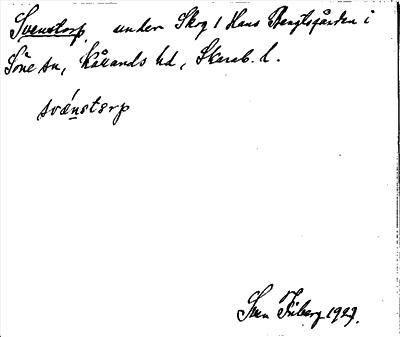 Svenstorp, under Skog 1 Hans Bengtsgården i
Söne sn, Kållands hd, Skarab. l.
svǽnstɛrp
Sven Friberg 1927.